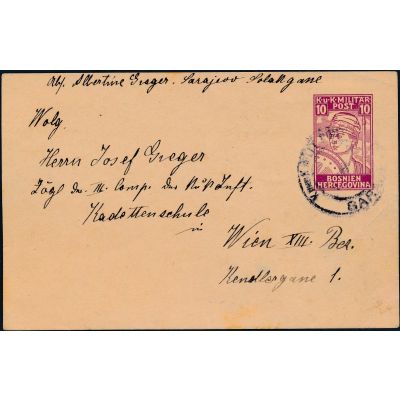 Abs. Albertine Greger. Sarajevo
K.u.K. MILITÄR
POST
10 10
BOSNIEN
HERCEGOVINA
Wolg.
Herrn Josef Greger
Zögl. der III. Comp. der K.u.K. Inft.
Kadettenschule
in
Wien XIII. Bez.
1.